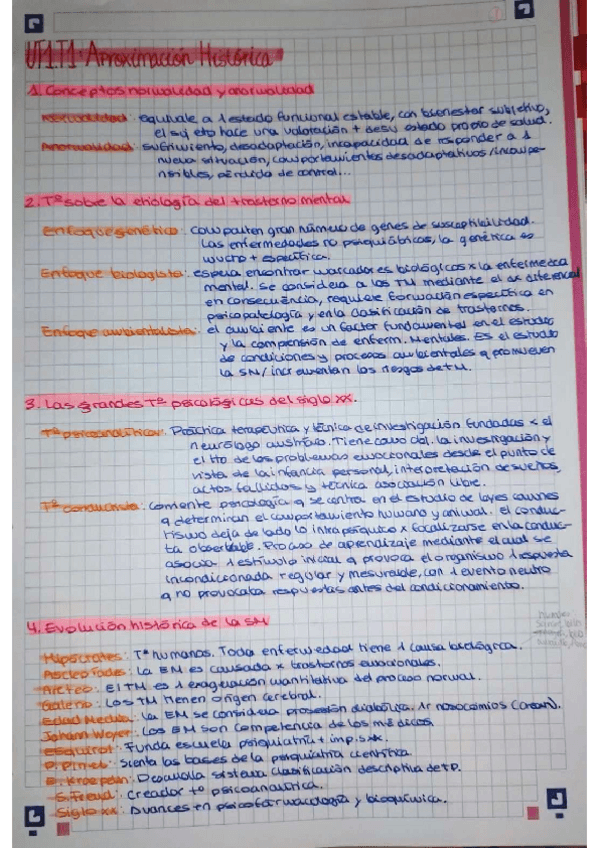 UT1T1: Aproximación Histórica
1. Conceptos normalidad y anormalidad
Normalidad: equivale a 1 estado funcional estable, con bienestar subjetivo,
el sujeto hace una valoración + de su estado propio de salud.
Anormalidad: sufrimiento, desadaptación, incapacidad de responder a 1
nueva situación, comportamientos desadaptativos/incompe-
nsibles, pérdida de control...
2. Tª sobre la etiología del trastorno mental
Enfoque genético: comparten gran número de genes de susceptibilidad.
Las enfermedades no psiquiátricas, la genética es
mucho + específica.
Enfoque biologista: espera encontrar marcadores biológicos x la enfermeda
mental. Se considera a los TM mediante el diferencial
en consecuencia, requiere formación específica en
psicopatología y en la clasificación de trastornos.
Enfoque ambientalista: el ambiente es un factor fundamental en el estudio
y la comprensión de enferm. Mentales. Es el estudio
de condiciones y procesos ambientales q promueven
la SM/incrementan los riesgos de TM.
3. Las grandes Tª psicológicas del siglo XX.
Tª psicoanalítica: Práctica terapéutica y técnica de investigación fundadas x el
neurólogo austriaco. Tiene como obj. la investigación y
el tto de los problemas emocionales desde el punto de
vista de la infancia personal, interpretación de sueños,
actos fallidos y técnica asociación libre.
Tª conductista: Corriente psicología q se centra en el estudio de leyes comunes
q determinan el comportamiento humano y animal. El conduc-
tismo deja de lado lo intrapsíquico x focalizarse en la conduc-
ta observable. Proceso de aprendizaje mediante el cual se
asocia 1 estímulo inicial q provoca el organismo 1 respuesta
incondicionada regular y mesurable, con 1 evento neutro
q no provocaba respuestas antes del condicionamiento.
4. Evolución histórica de la SM
Hipócrates: Tª humanos. Toda enfermedad tiene 1 causa biológica.
Asclepíades: La EM es causada x trastornos emocionales.
Areteo: El TM es 1 exageración cuantitativa del proceso normal.
Galeno: Los TM tienen origen cerebral.
Edad Media: La EM se considera posesión diabólica. 1r nosocomios
Johann Weyer: Los EM son competencia de los médicos.
Esquirol: Funda escuela psiquiatría + imp. s.XX.
P. Pinel: Sienta las bases de la psiquiatría científica.
E. Kraepelin: Desarrolla sistema clasificación descriptiva de TP.
S. Freud: Creador tª psicoanalítica.
Siglo XX: Avances en psicofarmacología y bioquímica.